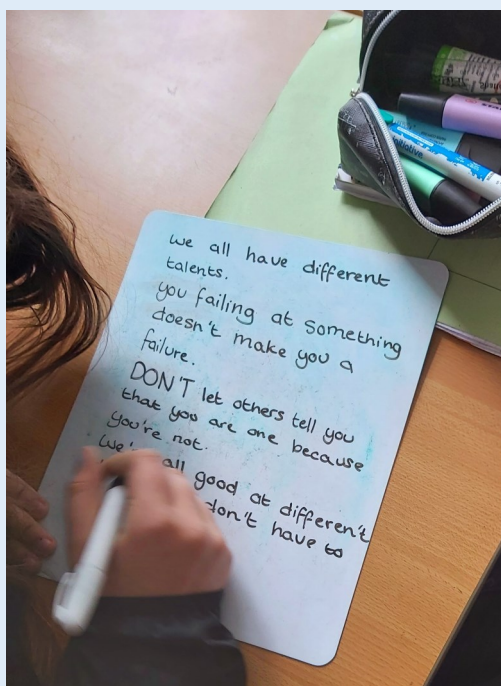 we all have different
talents.
you failing at something
doesn't make you a
failure.
DON'T let others tell you
that you are one because
you're not.
all good at differen't
don't have to